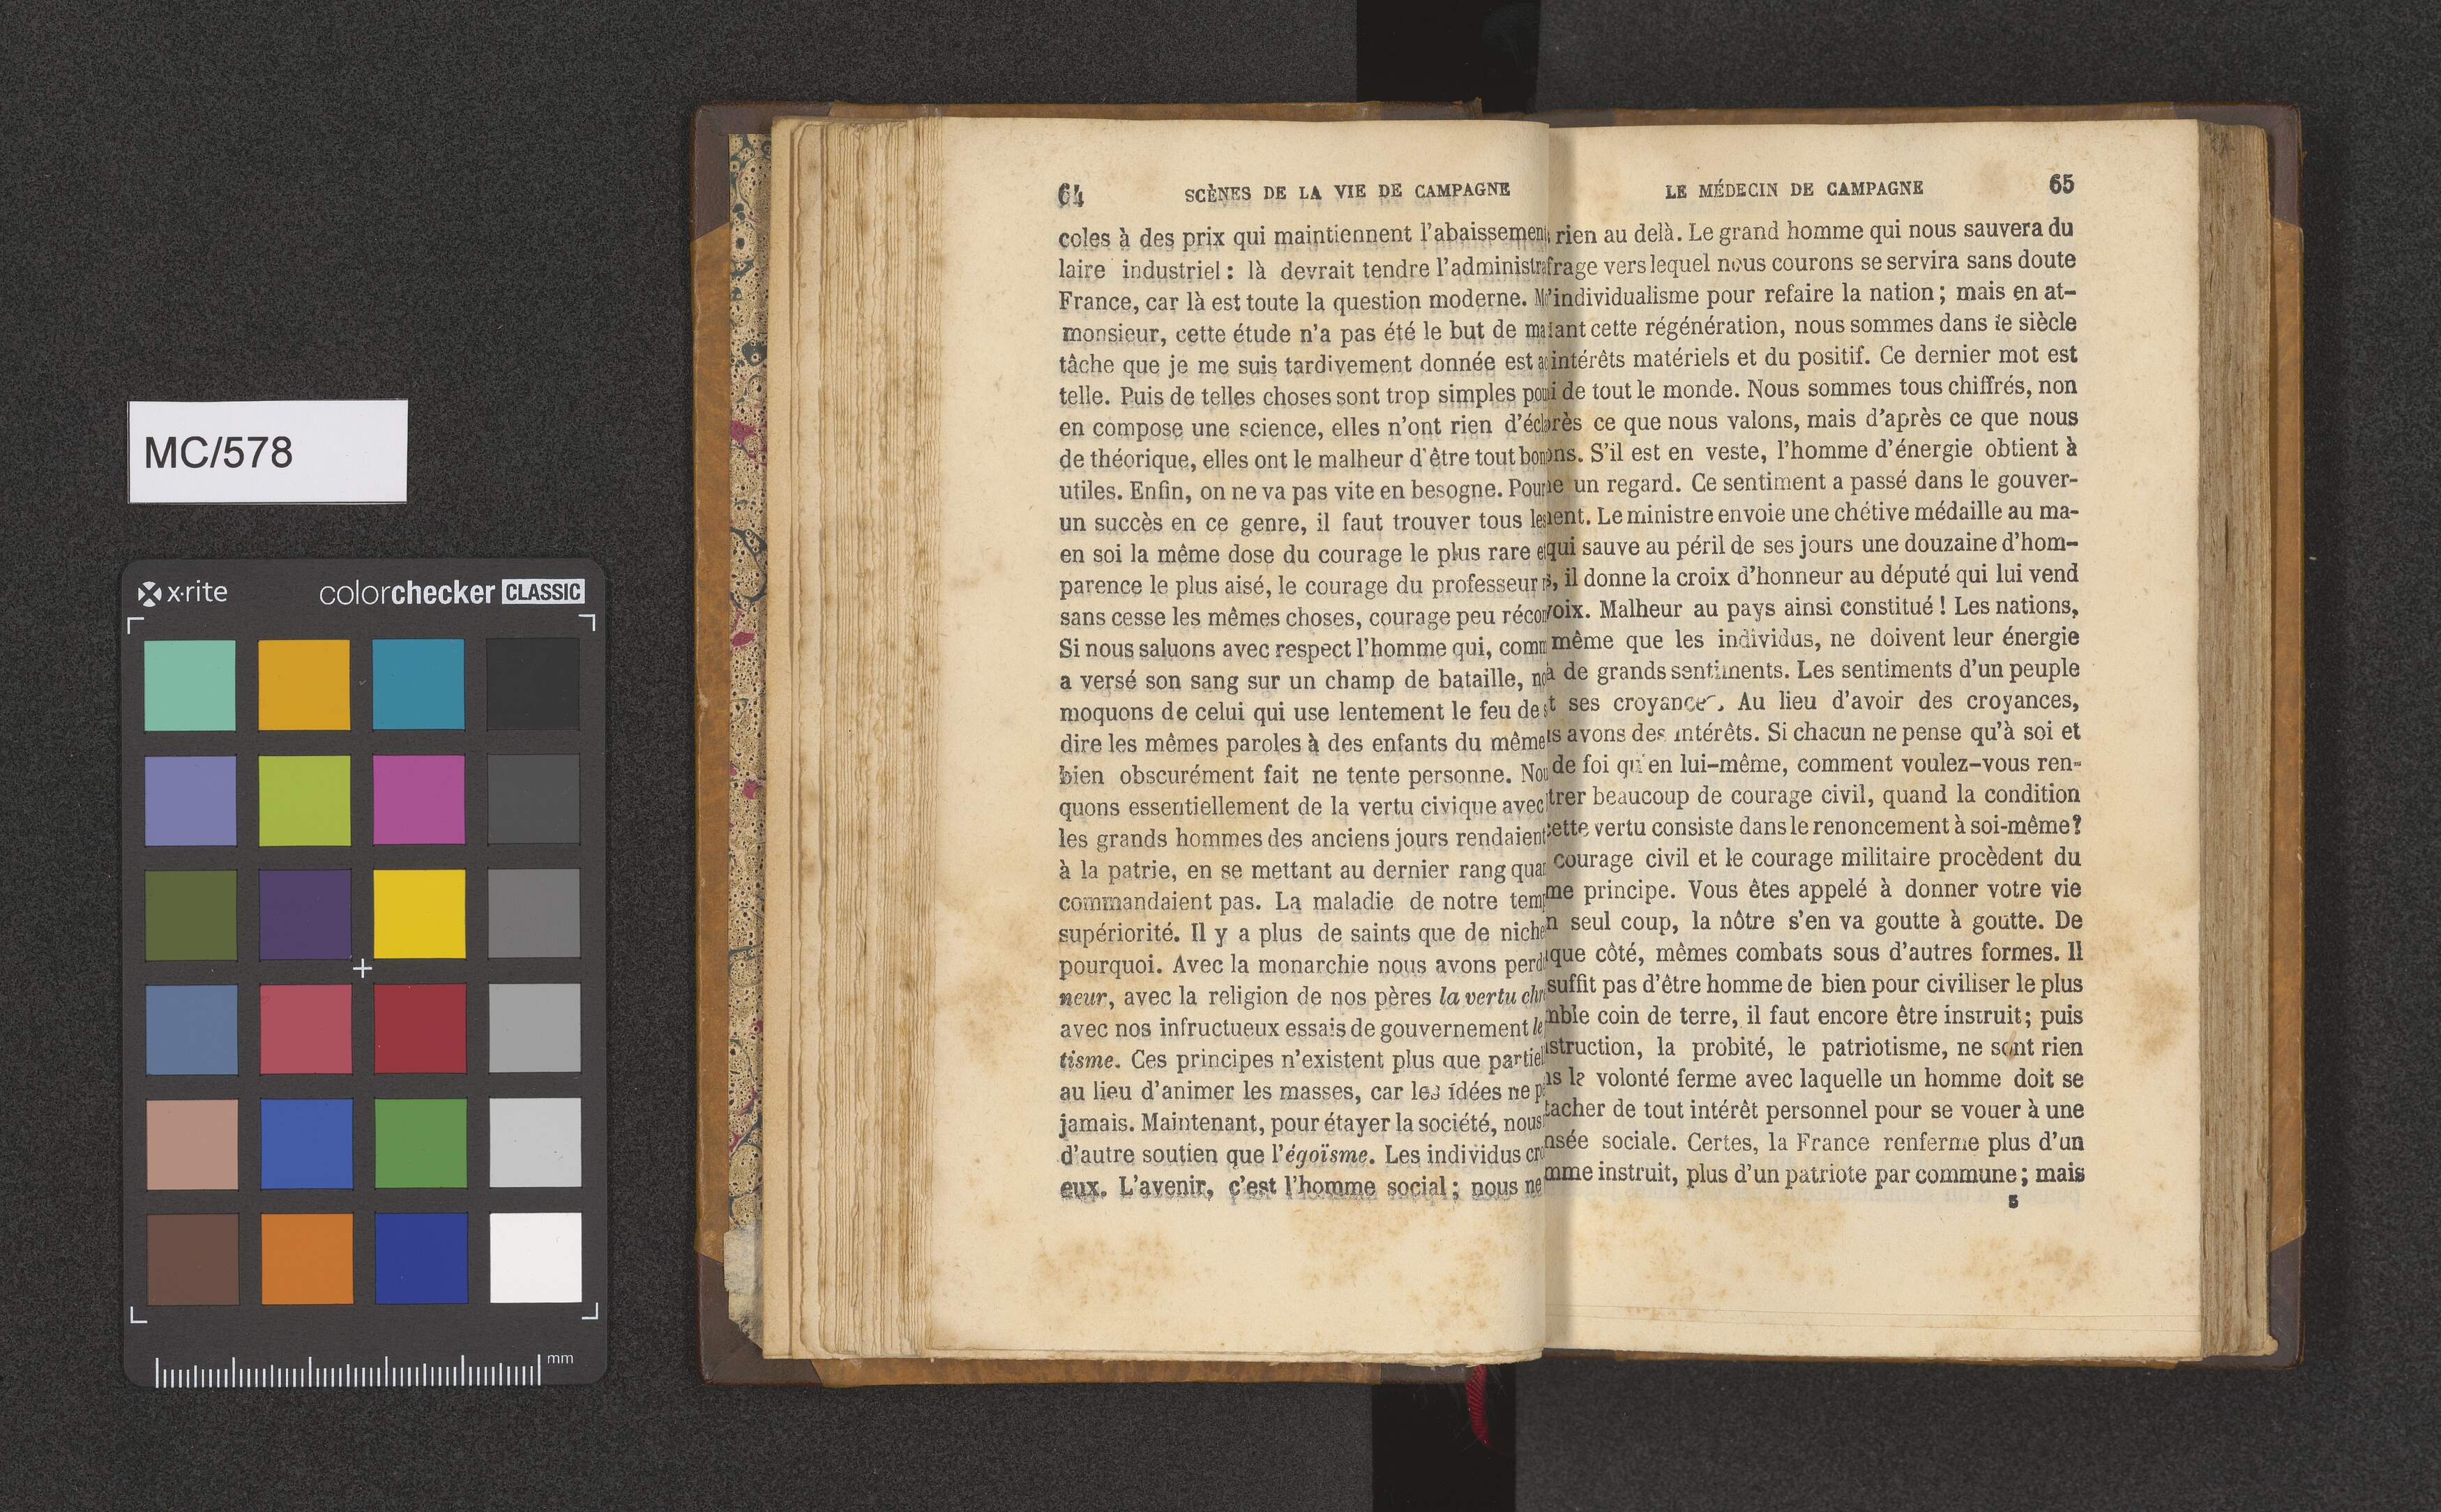 MC/578
x·rite colorchecker CLASSIC
mm
64 SCÈNES DE LA VIE DE CAMPAGNE
coles à des prix qui maintiennent l'abaissement
laire industriel : là devrait tendre
France, car là est toute la question moderne.
monsieur, cette étude n'a pas été le but de
tâche que je me suis tardivement donnée est
telle. Puis de telles choses sont trop simples
en compose une science, elles n'ont rien
de théorique, elles ont le malheur d'être tout
utiles. Enfin, on ne va pas vite en besogne. Pour
un succès en ce genre, il faut trouver tous les
en soi la même dose du courage le plus rare
parence le plus aisé, le courage du professeur
sans cesse les mêmes choses, courage peu
Si nous saluons avec respect l'homme qui,
a versé son sang sur un champ de bataille,
moquons de celui qui use lentement le feu de
dire les mêmes paroles à des enfants du même
bien obscurément fait ne tente personne.
quons essentiellement de la vertu civique avec
les grands hommes des anciens jours rendaient
à la patrie, en se mettant au dernier rang
commandaient pas. La maladie de notre
supériorité. Il y a plus de saints que de
pourquoi. Avec la monarchie nous avons
neur, avec la religion de nos pères la vertu
avec nos infructueux essais de gouvernement
tisme. Ces principes n'existent plus que
au lieu d'animer les masses, car les idées ne
jamais. Maintenant, pour étayer la société, nous
d'autre soutien que l'égoïsme. Les individus
eux. L'avenir, c'est l'homme social ; nous ne
LE MÉDECIN DE CAMPAGNE 65
rien au delà. Le grand homme qui nous sauvera du
frage vers lequel nous courons se servira sans doute
'individualisme pour refaire la nation ; mais en at-
cette régénération, nous sommes dans le siècle
intérêts matériels et du positif. Ce dernier mot est
de tout le monde. Nous sommes tous chiffrés, non
ce que nous valons, mais d'après ce que nous
S'il est en veste, l'homme d'énergie obtient à
un regard. Ce sentiment a passé dans le gouver-
Le ministre envoie une chétive médaille au ma-
qui sauve au péril de ses jours une douzaine d'hom-
il donne la croix d'honneur au député qui lui vend
voix. Malheur au pays ainsi constitué ! Les nations,
même que les individus, ne doivent leur énergie
à de grands sentiments. Les sentiments d'un peuple
ses croyances. Au lieu d'avoir des croyances,
avons des intérêts. Si chacun ne pense qu'à soi et
de foi qu'en lui-même, comment voulez-vous ren-
trer beaucoup de courage civil, quand la condition
cette vertu consiste dans le renoncement à soi-même ?
courage civil et le courage militaire procèdent du
me principe. Vous êtes appelé à donner votre vie
seul coup, la nôtre s'en va goutte à goutte. De
que côté, mêmes combats sous d'autres formes. Il
suffit pas d'être homme de bien pour civiliser le plus
coin de terre, il faut encore être instruit ; puis
struction, la probité, le patriotisme, ne sont rien
la volonté ferme avec laquelle un homme doit se
tacher de tout intérêt personnel pour se vouer à une
sociale. Certes, la France renferme plus d'un
mme instruit, plus d'un patriote par commune ; mais
5